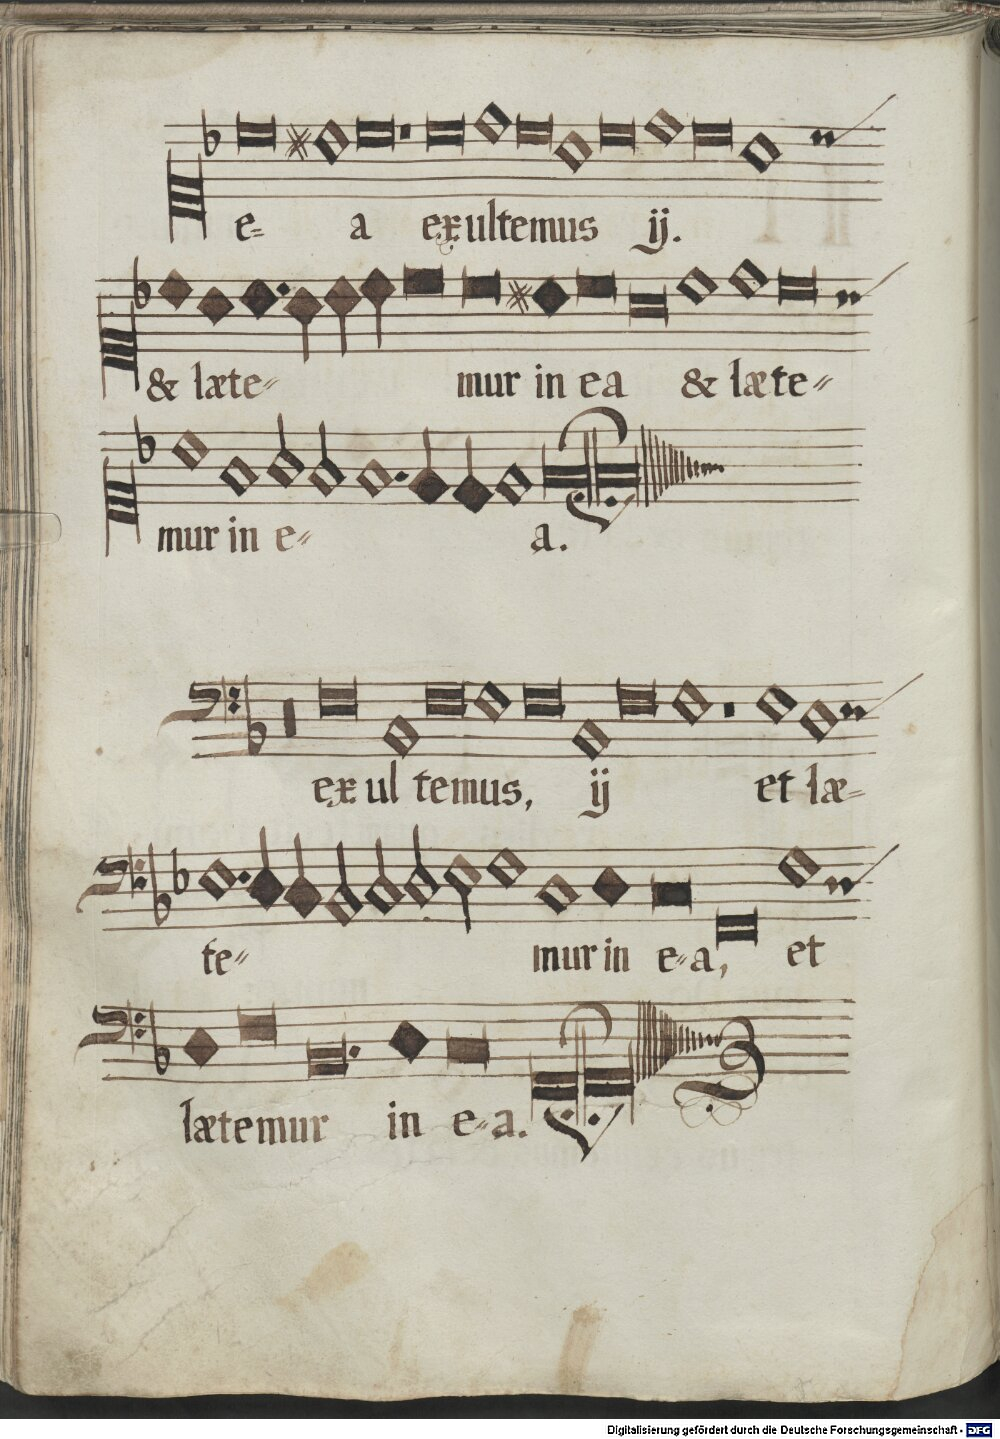 e= a exultemus ij.
& læte= mur in ea & læte=
mur in e= a.
exul temus, ij et læ=
te= mur in e=a, et
lætemur in e=a.
Digitalisierung gefördert durch die Deutsche Forschungsgemeinschaft - DFG